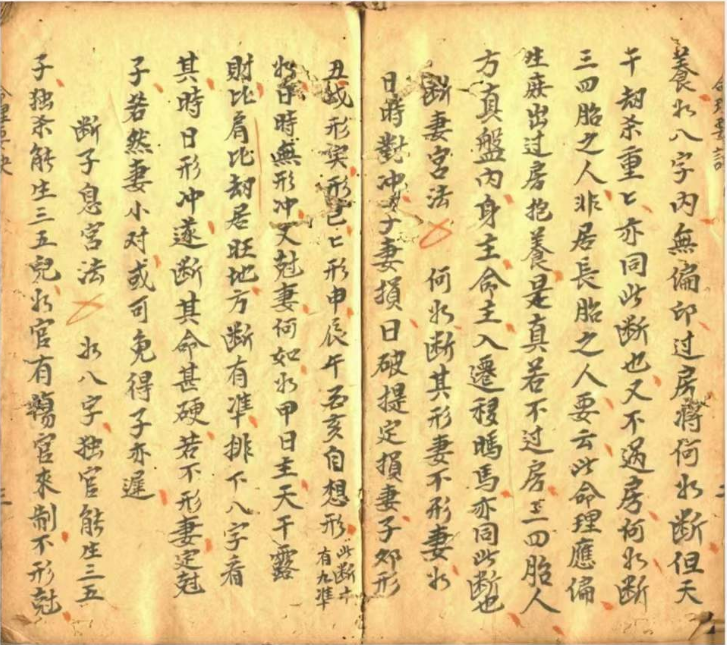 養如八字内無偏印过房得何如断但天
干刼杀重匕亦同此断也又不过房何如断
三四胎之人非居長胎之人要云此命理應偏
生庶出过房抱養是真若不过房三四胎人
方真盤内身主命主入遷移鴎馬亦同此断也
断妻宫法 何如断其形妻不形妻如
日時對冲妻損日破提定損妻子卯形
丑戌形寅形巳匕形申辰午酉亥自想形此断十有九凖
如日時無形冲又尅妻何如如甲日主天干露
財比肩比刼居旺地方断有凖排下八字看
其時日形冲遂断其命甚硬若不形妻定尅
子若然妻小对或可免得子亦遲
断子息宫法 如八字独官能生三五
子独杀能生三五兒如官有傷官來制不形尅
三